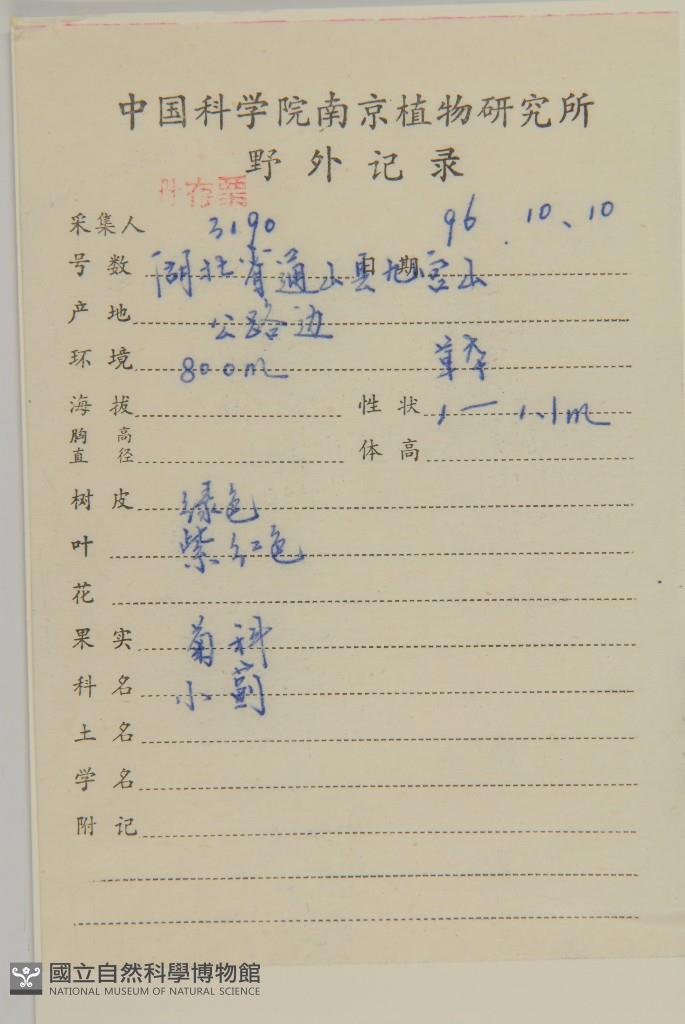 中国科学院南京植物研究所
野外记录
叶存票
采集人 3190 96.10、10
号数 湖北省通山县九宫山 日期
产地 公路边
环境 800m 草本
海拔 性状 1—1.1m
胸高直径 体高
树皮 绿色
叶 紫红色
花
果实 菊科
科名 小蓟
土名
学名
附记
國立自然科學博物館
NATIONAL MUSEUM OF NATURAL SCIENCE